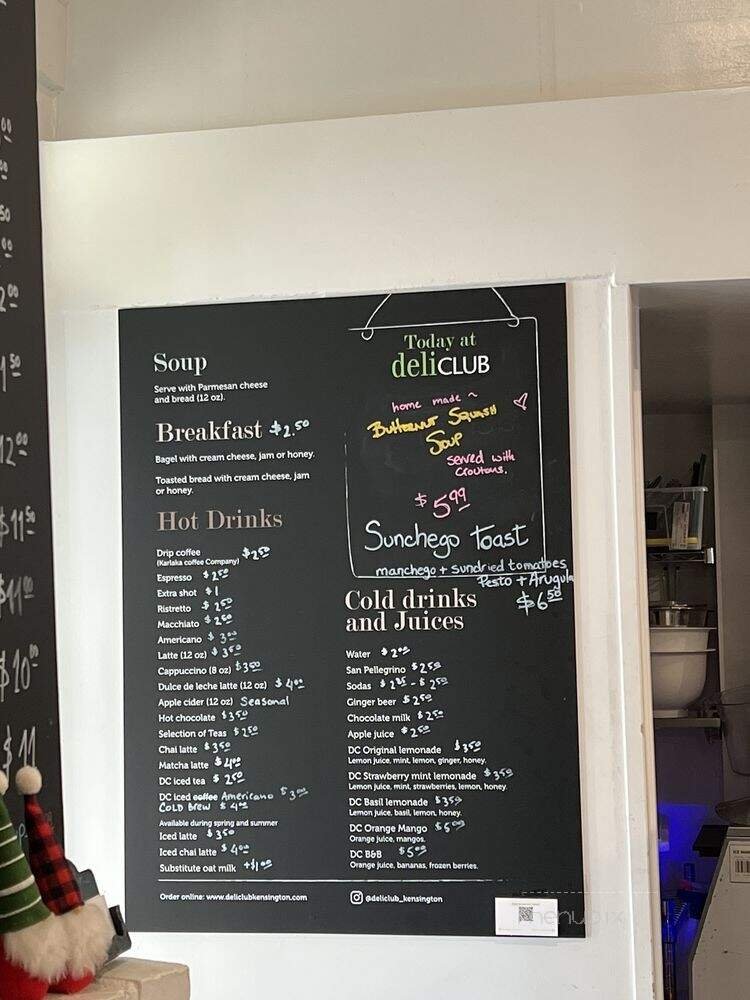 Soup
Serve with Parmesan cheese
and bread (12 oz).
Breakfast $2.50
Bagel with cream cheese, jam or honey.
Toasted bread with cream cheese, jam
or honey.
Hot Drinks
Drip coffee $2.50
(Karlaka coffee Company)
Espresso $2.50
Extra shot $1
Ristretto $2.50
Macchiato $2.50
Americano $3.00
Latte (12 oz) $3.50
Cappuccino (8 oz) $3.50
Dulce de leche latte (12 oz) $4.00
Apple cider (12 oz) Seasonal
Hot chocolate $3.50
Selection of Teas $2.50
Chai latte $3.50
Matcha latte $4.00
DC iced tea $2.50
DC iced coffee Americano $3.00
COLD brew $4.00
Available during spring and summer
Iced latte $3.50
Iced chai latte $4.00
Substitute oat milk +$1.00
Order online: www.deliclubkensington.com
Today at
deliCLUB
home made ~
Butternut Squash
Soup
served with
Croutons.
$5.99
Sunchego toast
manchego + sundried tomatoes
Pesto + Arugula
$6.50
Cold drinks
and Juices
Water $2.00
San Pellegrino $2.50
Sodas
Ginger beer $2.50
Chocolate milk $2.50
Apple juice $2.50
DC Original lemonade $3.50
Lemon juice, mint, lemon, ginger, honey.
DC Strawberry mint lemonade $3.50
Lemon juice, mint, strawberries, lemon, honey.
DC Basil lemonade $3.50
Lemon juice, basil, lemon, honey.
DC Orange Mango $5.00
Orange juice, mangos.
DC B&B $5.00
Orange juice, bananas, frozen berries.
@deliclub_kensington